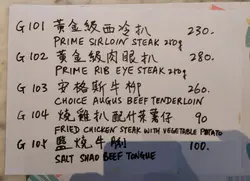 G101 黃金級西冷扒 230.
PRIME SIRLOIN STEAK 250g
G102 黃金級肉眼扒 280.
PRIME RIB EYE STEAK 250g
G103 安格斯牛柳 260.
CHOICE AUGUS BEEF TENDERLOIN
G104 燒雞扒配什菜薯仔 90
FRIED CHICKEN STEAK WITH VEGETABLE POTATO
G105 鹽燒牛脷 100.
SALT SHAO BEEF TONGUE